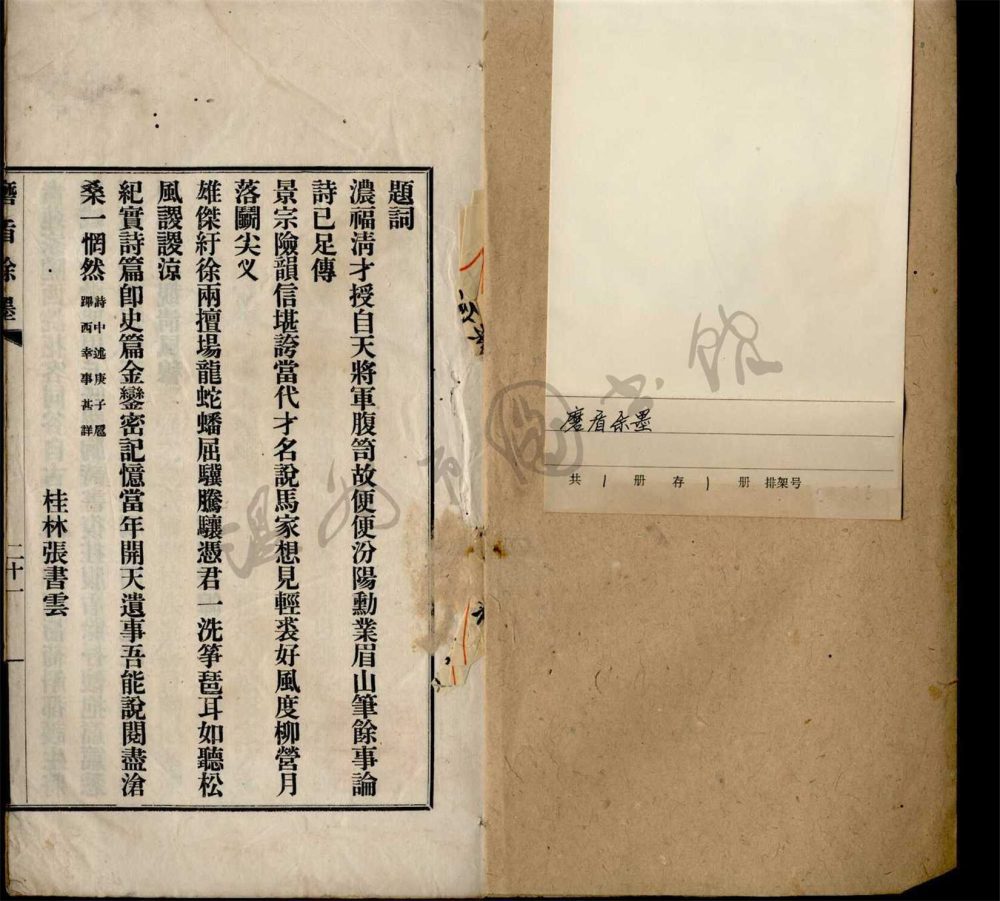 題詞
濃福淸才授自天將軍腹笥故便便汾陽勳業眉山筆餘事論
詩已足傳
景宗險韻信堪誇當代才名說馬家想見輕裘好風度柳營月
落鬭尖叉
雄傑紆徐兩擅場龍蛇蟠屈驥騰驤憑君一洗筝琶耳如聽松
風謖謖涼
紀實詩篇卽史篇金鑾密記憶當年開天遺事吾能說閱盡滄
桑一惘然
詩中述庚子扈
蹕西幸事甚詳
桂林張書雲
磨盾餘墨
二十一
磨盾余墨
共 1 册 存 1 册 排架号
温州市圖书館